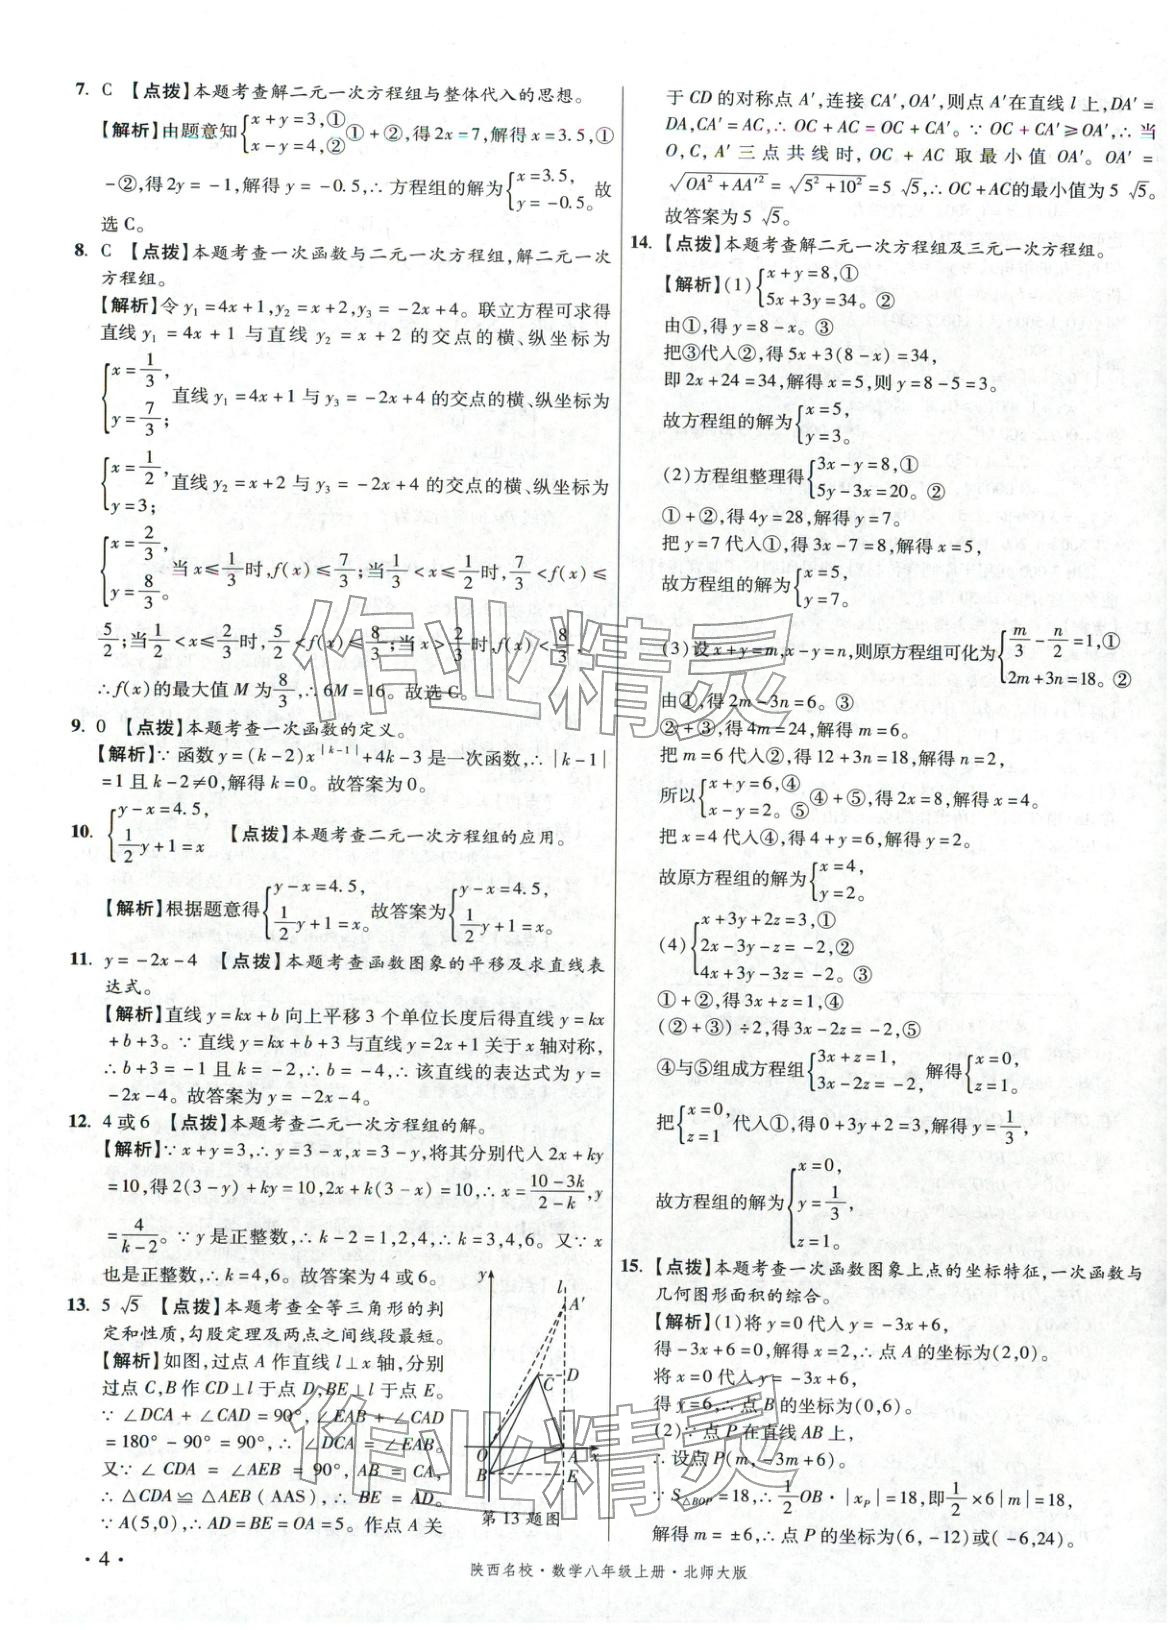 7. C 【点拨】本题考查解二元一次方程组与整体代入的思想。
【解析】由题意知{x+y=3,① x-y=4,② ①+②,得2x=7,解得x=3.5,①
-②,得2y=-1,解得y=-0.5,∴方程组的解为{x=3.5, y=-0.5。故
选C。
8. C 【点拨】本题考查一次函数与二元一次方程组,解二元一次
方程组。
【解析】令y₁=4x+1,y₂=x+2,y₃=-2x+4。联立方程可求得
直线y₁=4x+1与直线y₂=x+2的交点的横、纵坐标为
{x=1/3, y=7/3; 直线y₁=4x+1与y₃=-2x+4的交点的横、纵坐标为
{x=1/2, y=3; 直线y₂=x+2与y₃=-2x+4的交点的横、纵坐标为
{x=2/3, y=8/3。 当x≤1/3时,f(x)≤7/3;当1/3<x≤1/2时,7/3<f(x)≤
5/2;当1/2<x≤2/3时,5/2<f(x)≤8/3;当x>2/3时,f(x)<8/3,
∴f(x)的最大值M为8/3,∴6M=16。故选C。
9. 0 【点拨】本题考查一次函数的定义。
【解析】∵函数y=(k-2)x^|k-1|+4k-3是一次函数,∴|k-1|
=1且k-2≠0,解得k=0。故答案为0。
10. {y-x=4.5, 1/2y+1=x 【点拨】本题考查二元一次方程组的应用。
【解析】根据题意得{y-x=4.5, 1/2y+1=x。 故答案为{y-x=4.5, 1/2y+1=x。
11. y=-2x-4 【点拨】本题考查函数图象的平移及求直线表
达式。
【解析】直线y=kx+b向上平移3个单位长度后得直线y=kx
+b+3。∵直线y=kx+b+3与直线y=2x+1关于x轴对称,
∴b+3=-1且k=-2,∴b=-4,∴该直线的表达式为y=
-2x-4。故答案为y=-2x-4。
12. 4或6 【点拨】本题考查二元一次方程组的解。
【解析】∵x+y=3,∴y=3-x,x=3-y,将其分别代入2x+ky
=10,得2(3-y)+ky=10,2x+k(3-x)=10,∴x=10-3k/2-k,y
=4/k-2。∵y是正整数,∴k-2=1,2,4,∴k=3,4,6。又∵x
也是正整数,∴k=4,6。故答案为4或6。
13. 5√5 【点拨】本题考查全等三角形的判
定和性质,勾股定理及两点之间线段最短。
【解析】如图,过点A作直线l⊥x轴,分别
过点C,B作CD⊥l于点D,BE⊥l于点E。
∵∠DCA+∠CAD=90°,∠EAB+∠CAD
=180°-90°=90°,∴∠DCA=∠EAB。
又∵∠CDA=∠AEB=90°,AB=CA,
∴△CDA≌△AEB(AAS),∴BE=AD。
∵A(5,0),∴AD=BE=OA=5。作点A关
y
l
A′
D
C
O
A
x
B
E
第13题图
于CD的对称点A′,连接CA′,OA′,则点A′在直线l上,DA′=
DA,CA′=AC,∴OC+AC=OC+CA′。∵OC+CA′≥OA′,∴当
O,C,A′三点共线时,OC+AC取最小值OA′。OA′=
√OA²+AA′²=√5²+10²=5√5,∴OC+AC的最小值为5√5。
故答案为5√5。
14. 【点拨】本题考查解二元一次方程组及三元一次方程组。
【解析】(1){x+y=8,① 5x+3y=34。②
由①,得y=8-x。③
把③代入②,得5x+3(8-x)=34,
即2x+24=34,解得x=5,则y=8-5=3。
故方程组的解为{x=5, y=3。
(2)方程组整理得{3x-y=8,① 5y-3x=20。②
①+②,得4y=28,解得y=7。
把y=7代入①,得3x-7=8,解得x=5,
故方程组的解为{x=5, y=7。
(3)设x+y=m,x-y=n,则原方程组可化为{m/3-n/2=1,① 2m+3n=18。②
由①,得2m-3n=6。③
②+③,得4m=24,解得m=6。
把m=6代入②,得12+3n=18,解得n=2,
所以{x+y=6,④ x-y=2。⑤ ④+⑤,得2x=8,解得x=4。
把x=4代入④,得4+y=6,解得y=2。
故原方程组的解为{x=4, y=2。
(4){x+3y+2z=3,① 2x-3y-z=-2,② 4x+3y-3z=-2。③
①+②,得3x+z=1,④
(②+③)÷2,得3x-2z=-2,⑤
④与⑤组成方程组{3x+z=1, 3x-2z=-2, 解得{x=0, z=1。
把{x=0, z=1 代入①,得0+3y+2=3,解得y=1/3,
故方程组的解为{x=0, y=1/3, z=1。
15. 【点拨】本题考查一次函数图象上点的坐标特征,一次函数与
几何图形面积的综合。
【解析】(1)将y=0代入y=-3x+6,
得-3x+6=0,解得x=2,∴点A的坐标为(2,0)。
将x=0代入y=-3x+6,
得y=6,∴点B的坐标为(0,6)。
(2)∵点P在直线AB上,
∴设点P(m,-3m+6)。
∵S△BOP=18,∴1/2OB·|xP|=18,即1/2×6|m|=18,
解得m=±6,∴点P的坐标为(6,-12)或(-6,24)。
·4·
陕西名校·数学八年级上册·北师大版
作业精灵
作业精灵